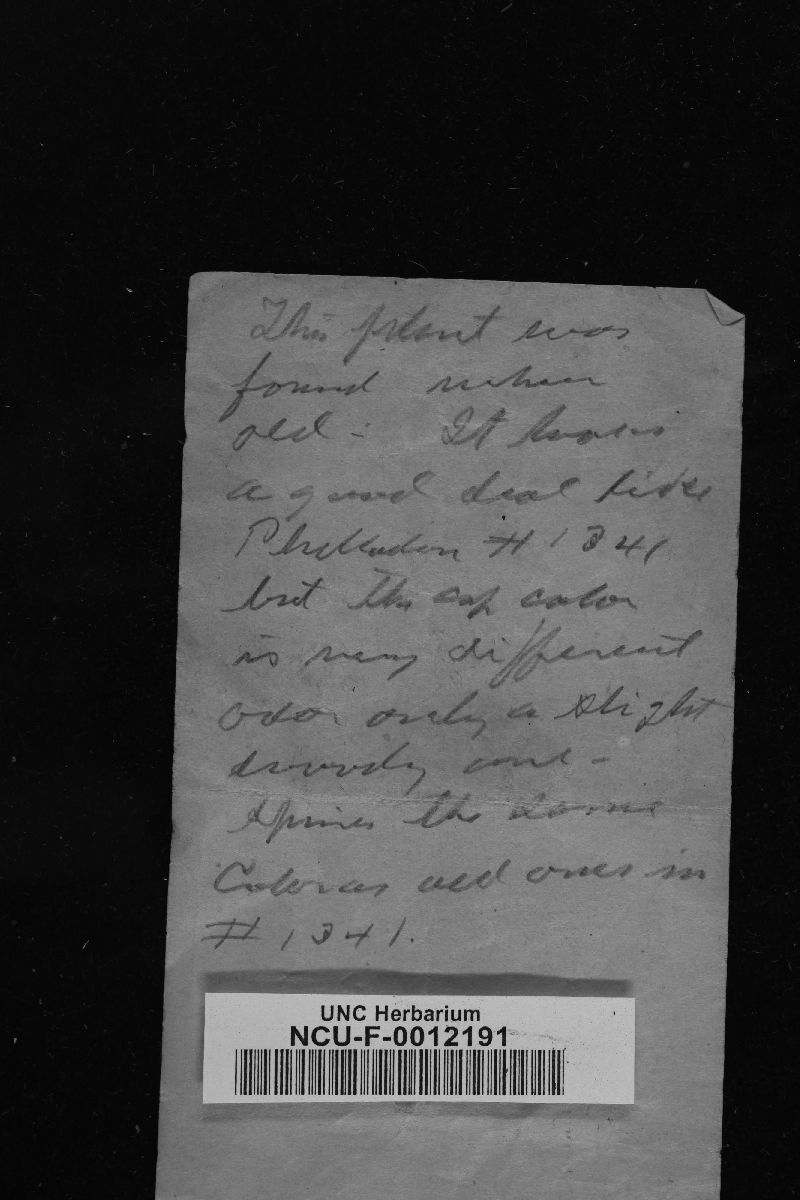 This plant was
found when
old - It looks
a good deal like
Phellodon # 1341
but the cap color
is very different
odor only a slight
woody one -
Spines the same
Color as old ones in
# 1341.
UNC Herbarium
NCU-F-0012191